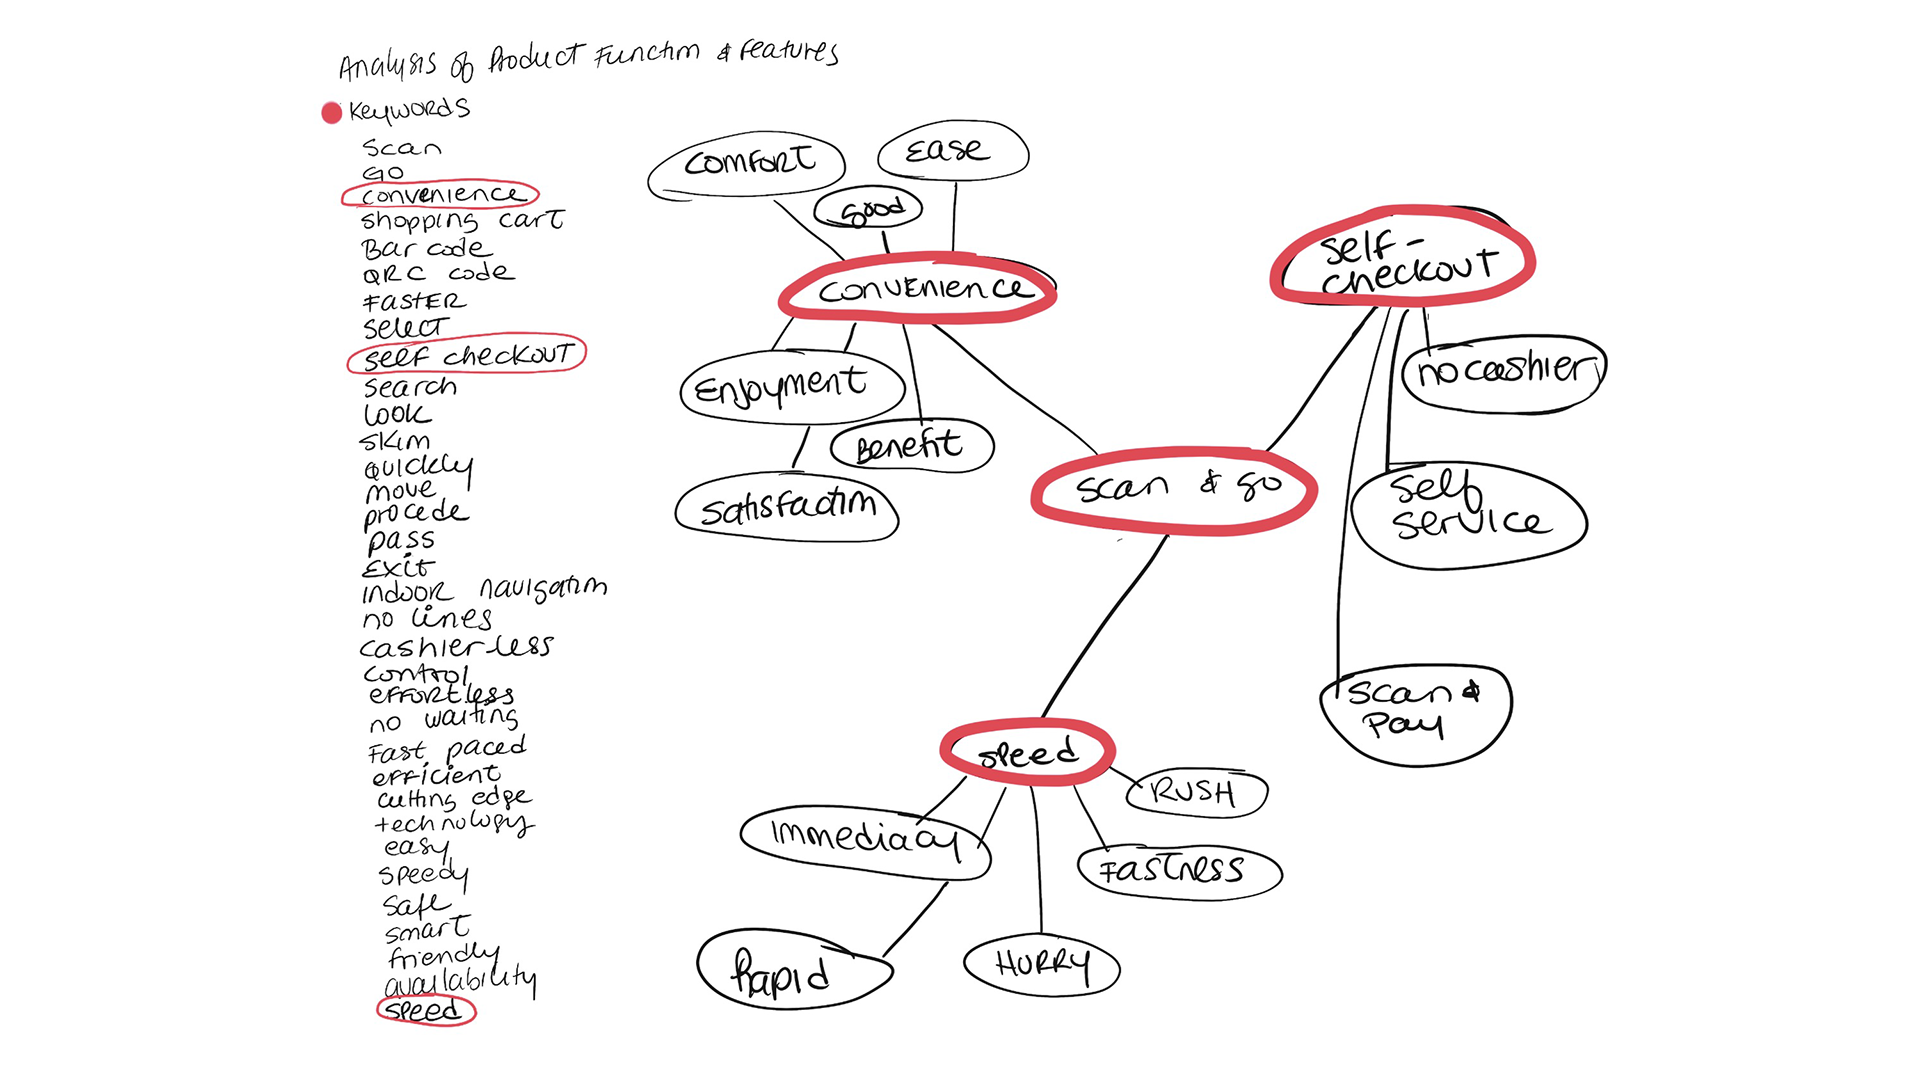 Analysis of Product Function & Features
Keywords
Scan
Go
convenience
shopping cart
Bar code
QRC code
FASTER
select
self checkout
search
look
skim
quickly
move
procede
pass
Exit
indoor navigation
no lines
cashier-less
control
effortless
no waiting
Fast paced
efficient
cutting edge
technology
easy
speedy
safe
smart
friendly
availability
speed
COMFORT
Ease
good
convenience
Enjoyment
Benefit
satisfaction
scan & go
self-
checkout
no cashier
self
service
scan &
pay
speed
RUSH
Immediacy
FASTNESS
Rapid
HURRY